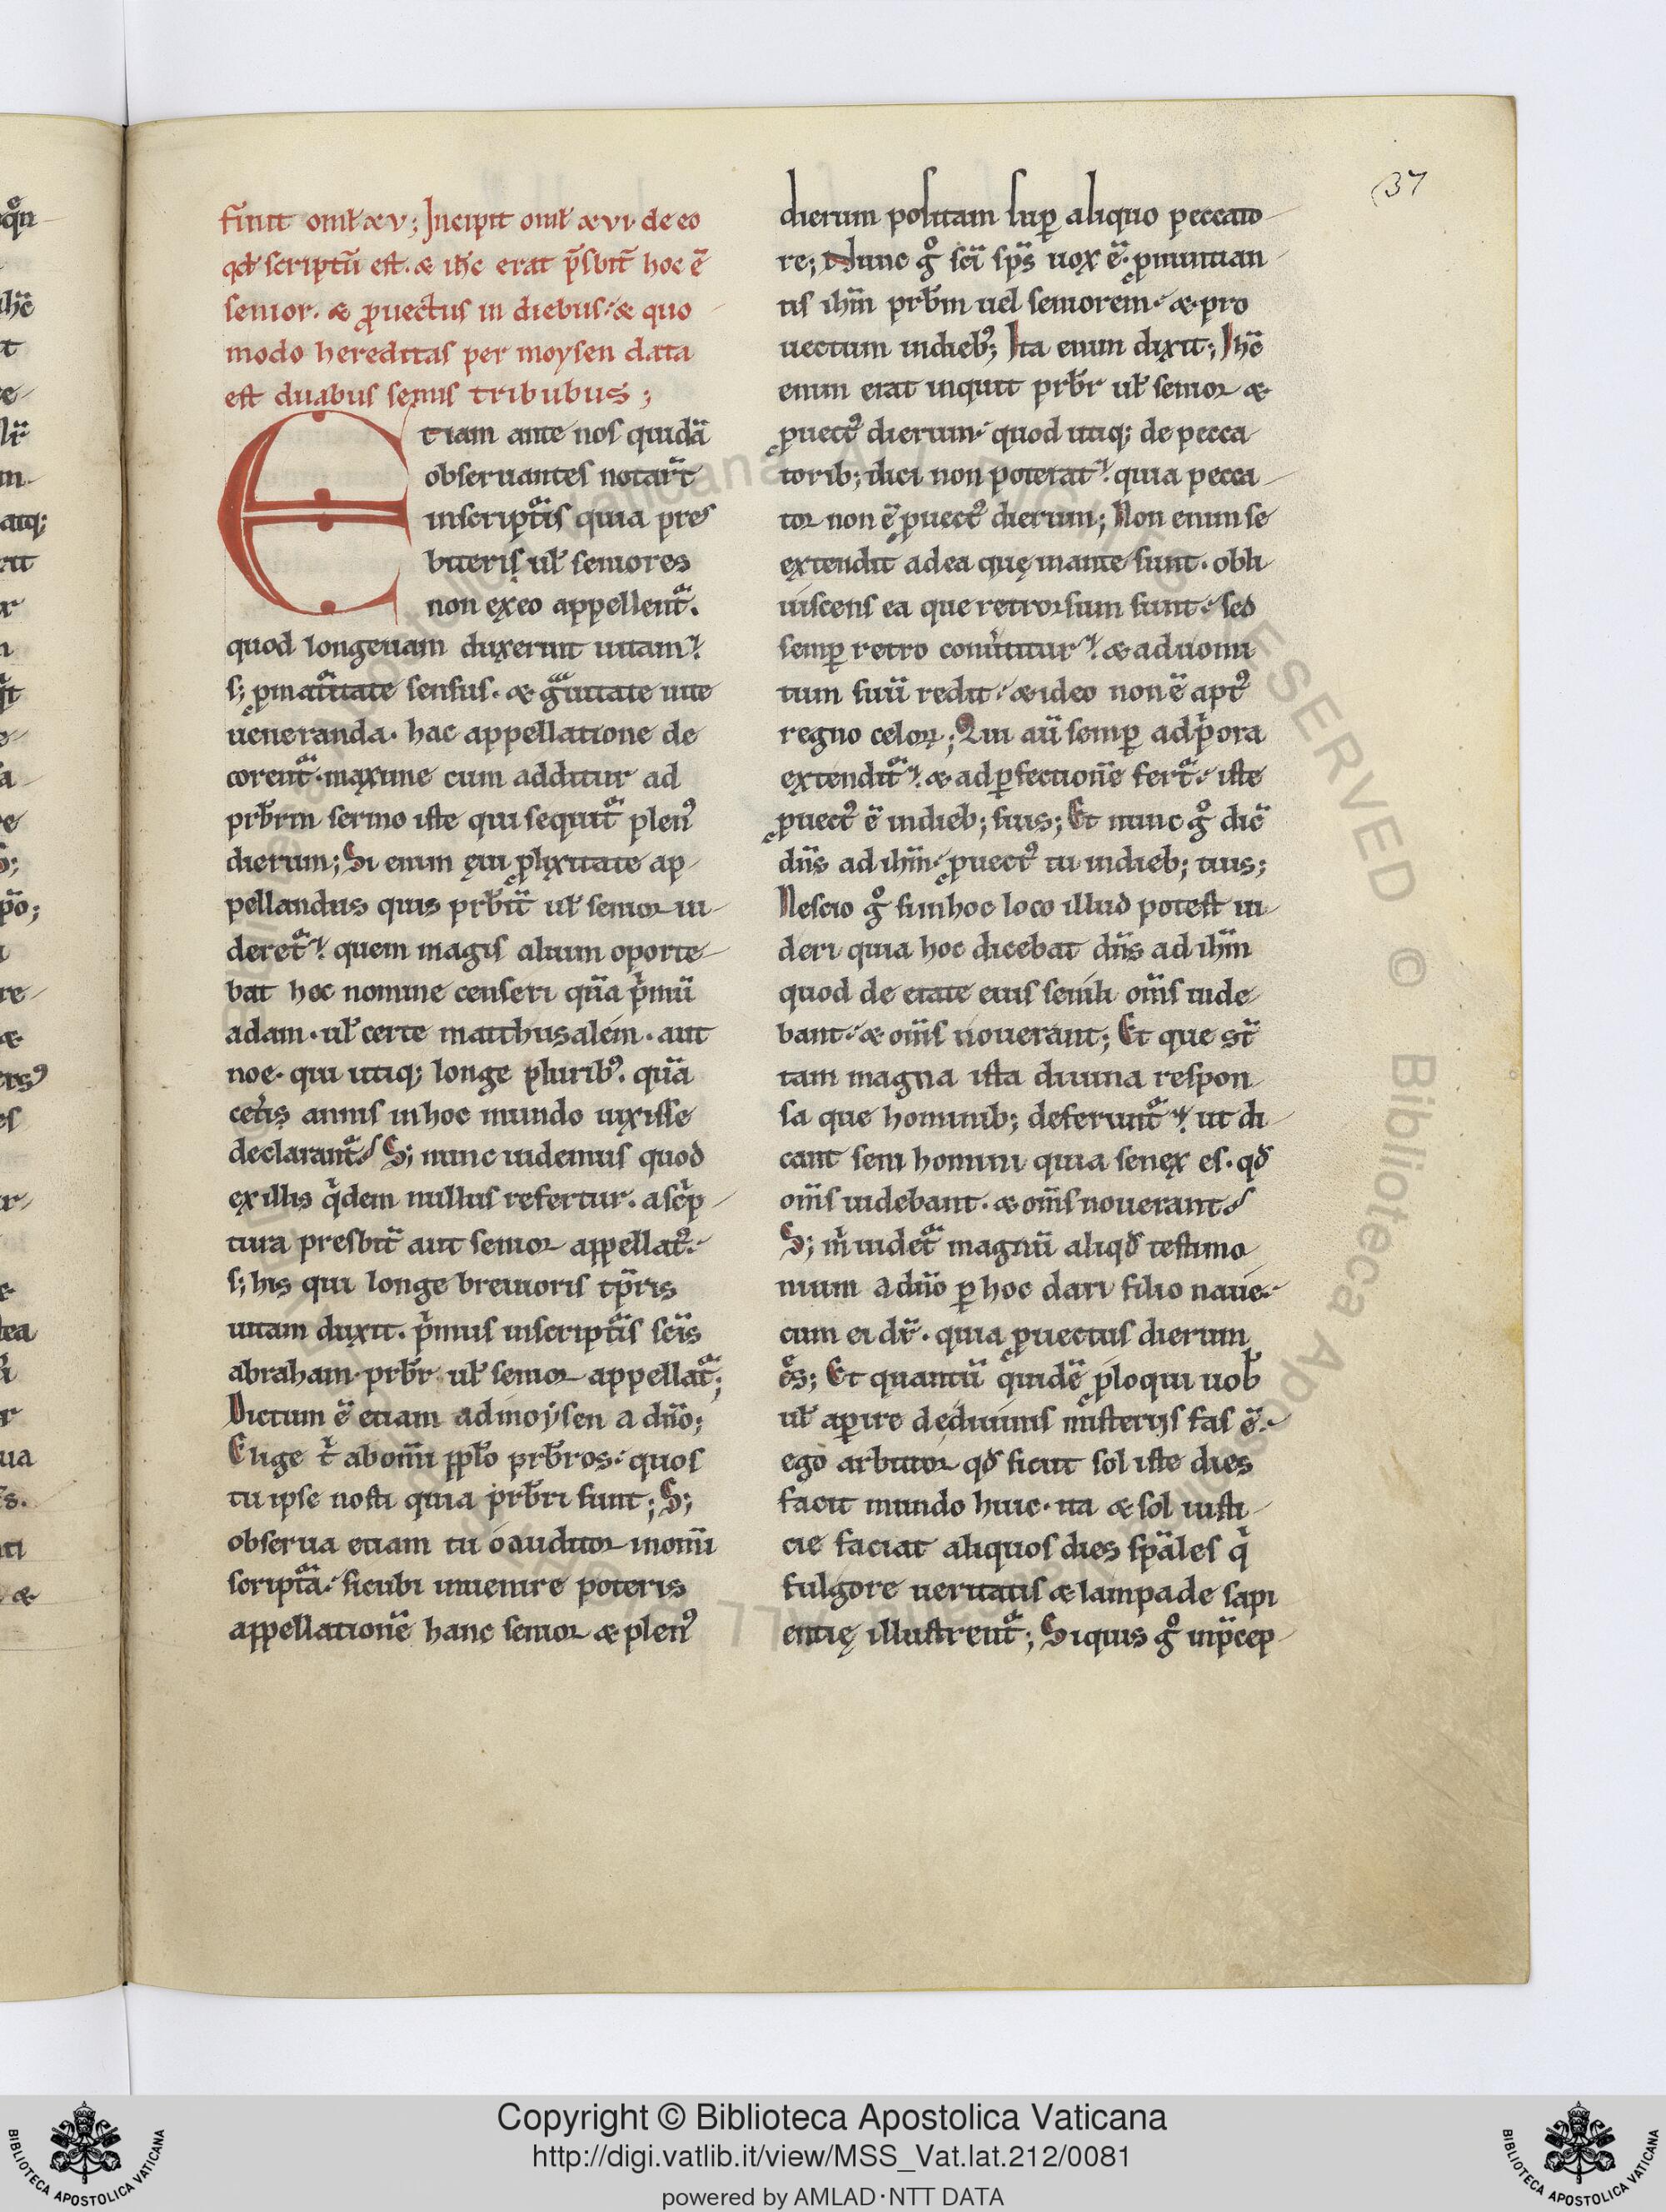 37
finit omił xv; Incipit omił xvi de eo
qđ scriptū est. & ih̄c erat p̄sbit̄ hoc ē
senior. & ꝓuectus in diebus. & quo
modo hereditas per moysen data
est duabus semis tribubus;
Etiam ante nos quidā
obseruantes notar̄t
inscript̄is quia pres
biteri uł seniores
non ex eo appellent̄.
quod longeuam duxerint uitam.
s; ꝓ mat̄itate sensus. & g̃uitate uite
ueneranda. hac appellatione de
corent̄. maxime cum additur ad
prb̄rm sermo iste qui sequit̄ plenꝰ
dierum; Si enim ęui ꝓlixitate ap
pellandus quis prb̄it̄ uł senior ui
deret̄. quem magis alium oporte
bat hoc nomine censeri quā p̄mū
adam. uł certe matthusalem. aut
noe. qui utiq; longe pluribꝰ. quā
cet̄is annis in hoc mundo uixisse
declarant̄. S; nunc uidemus quod
ex illis q̄dem nullus refertur. a sc̄p
tura presbit̄ aut senior appellatꝰ.
s; his qui longe breuioris tp̄ris
uitam duxit. p̄mus inscript̄is sc̄is
abraham. prb̄r uł senior appellat̄;
Dictum ē etiam ad moysen a dn̄o;
Elige t̄ ab om̄i pp̄lo prb̄ros. quos
tu ipse nosti quia prb̄ri sunt; S;
obserua etiam tu o auditor in om̄i
script̄a. sicubi inuenire poteris
appellationē hanc senior & plenꝰ
dierum positam sup̲ aliquo peccato
re; Nunc g̊ sc̄i sp̄s uox ē. ꝓnuntian
tis ih̄m prb̄m uel seniorem. & pro
uectum in diebꝰ; Ita enim dixit; Ih̄c
enim erat inquit prb̄r uł senior &
ꝓuectꝰ dierum. quod utiq; de pecca
torib; dici non poterat. quia pecca
tor non ē ꝓuectꝰ dierum; Non enim se
extendit ad ea quę in ante sunt. obli
uiscens ea que retrorsum sunt. sed
semp̲ retro conu̇titur. & ad uomi
tum suū redit. & ideo non ē aptꝰ
regno celoꝝ; Qui aū semp̲ ad p̄ora
extendit̄. & ad p̲fectionē fert̄. iste
ꝓuectꝰ ē in dieb; suis; Et nunc g̊ dic̄
dn̄s ad ih̄m. ꝓuectꝰ tu in dieb; tuis;
Nescio g̊ si in hoc loco illud potest ui
deri quia hoc dicebat dn̄s ad ih̄m
quod de etate eius senili om̄s uide
bant. & om̄s nouerant; Et que st̄
tam magna ista diuina respon
sa que hominib; deferunt̄. ut di
cant seni homini quia senex es. qđ
om̄s uidebant. & om̄s nouerant.
S; m̄ uidet̄ magnū aliqđ testimo
nium a dn̄o p̲ hoc dari filio naue.
cum ei dr̄. quia ꝓuectus dierum
es; Et quantū quidē ꝓloqui uob̄
uł ap̲ire de diuinis misterijs fas ē.
ego arbitror qđ sicut sol iste dies
facit mundo huic. ita & sol iusti
cie faciat aliquos dies sp̄ales q̄
fulgore ueritatis & lampade sapi
entię illustrent̄; Siquis g̊ in p̄cep
Copyright © Biblioteca Apostolica Vaticana
http://digi.vatlib.it/view/MSS_Vat.lat.212/0081
powered by AMLAD·NTT DATA
BIBLIOTECA APOSTOLICA VATICANA
BIBLIOTECA APOSTOLICA VATICANA